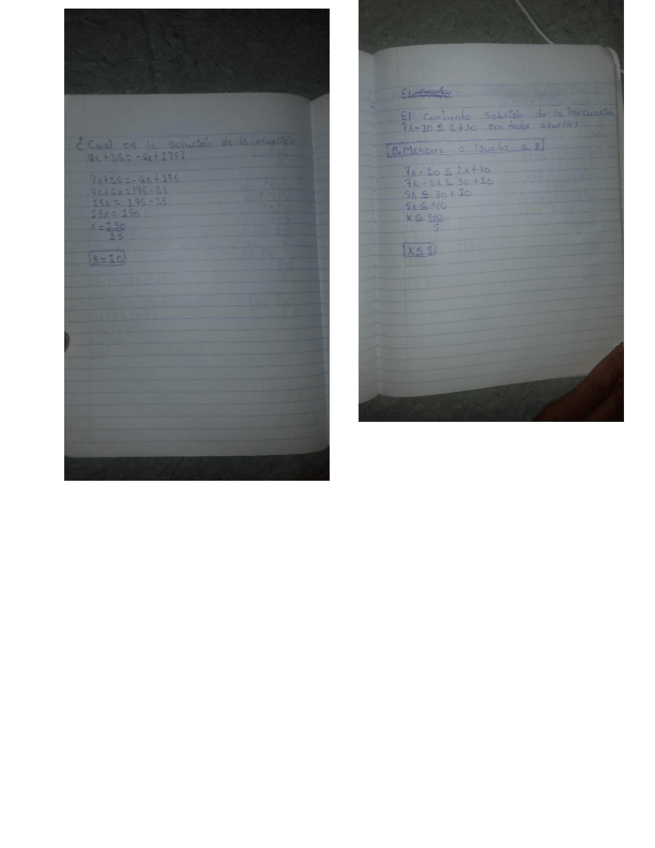 ¿Cual es la solución de la ecuación
9x+25=-6x+175?
9x+25=-6x+175
9x+6x=175-25
15x = 175-25
15x= 150
x=150
15
x=10
El
El Conjunto Solución de la Inecuación
7x-10 ≤ 2x+30 son todos aquellos
D. Menores o Iguales a 8
7x-10 ≤ 2x+30
7x-2x ≤ 30+10
5x ≤ 30+10
5x ≤ 40
x ≤ 40
5
x ≤ 8